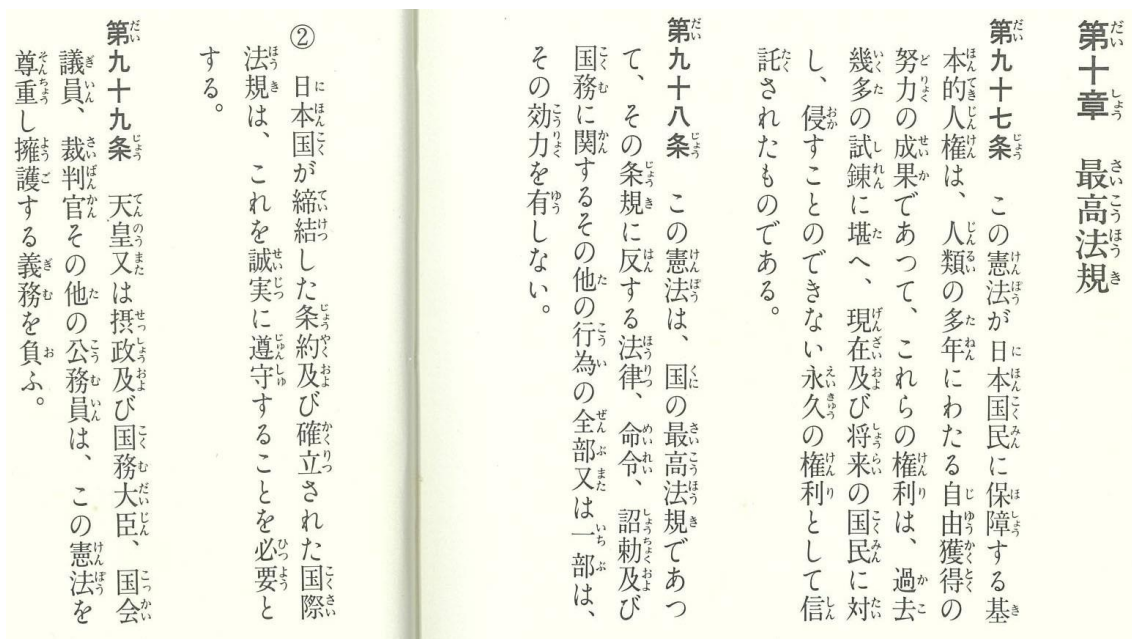 第十章　最高法規
第九十七条　この憲法が日本国民に保障する基
本的人権は、人類の多年にわたる自由獲得の
努力の成果であつて、これらの権利は、過去
幾多の試錬に堪へ、現在及び将来の国民に対
し、侵すことのできない永久の権利として信
託されたものである。
第九十八条　この憲法は、国の最高法規であつ
て、その条規に反する法律、命令、詔勅及び
国務に関するその他の行為の全部又は一部は、
その効力を有しない。
②　日本国が締結した条約及び確立された国際
法規は、これを誠実に遵守することを必要と
する。
第九十九条　天皇又は摂政及び国務大臣、国会
議員、裁判官その他の公務員は、この憲法を
尊重し擁護する義務を負ふ。